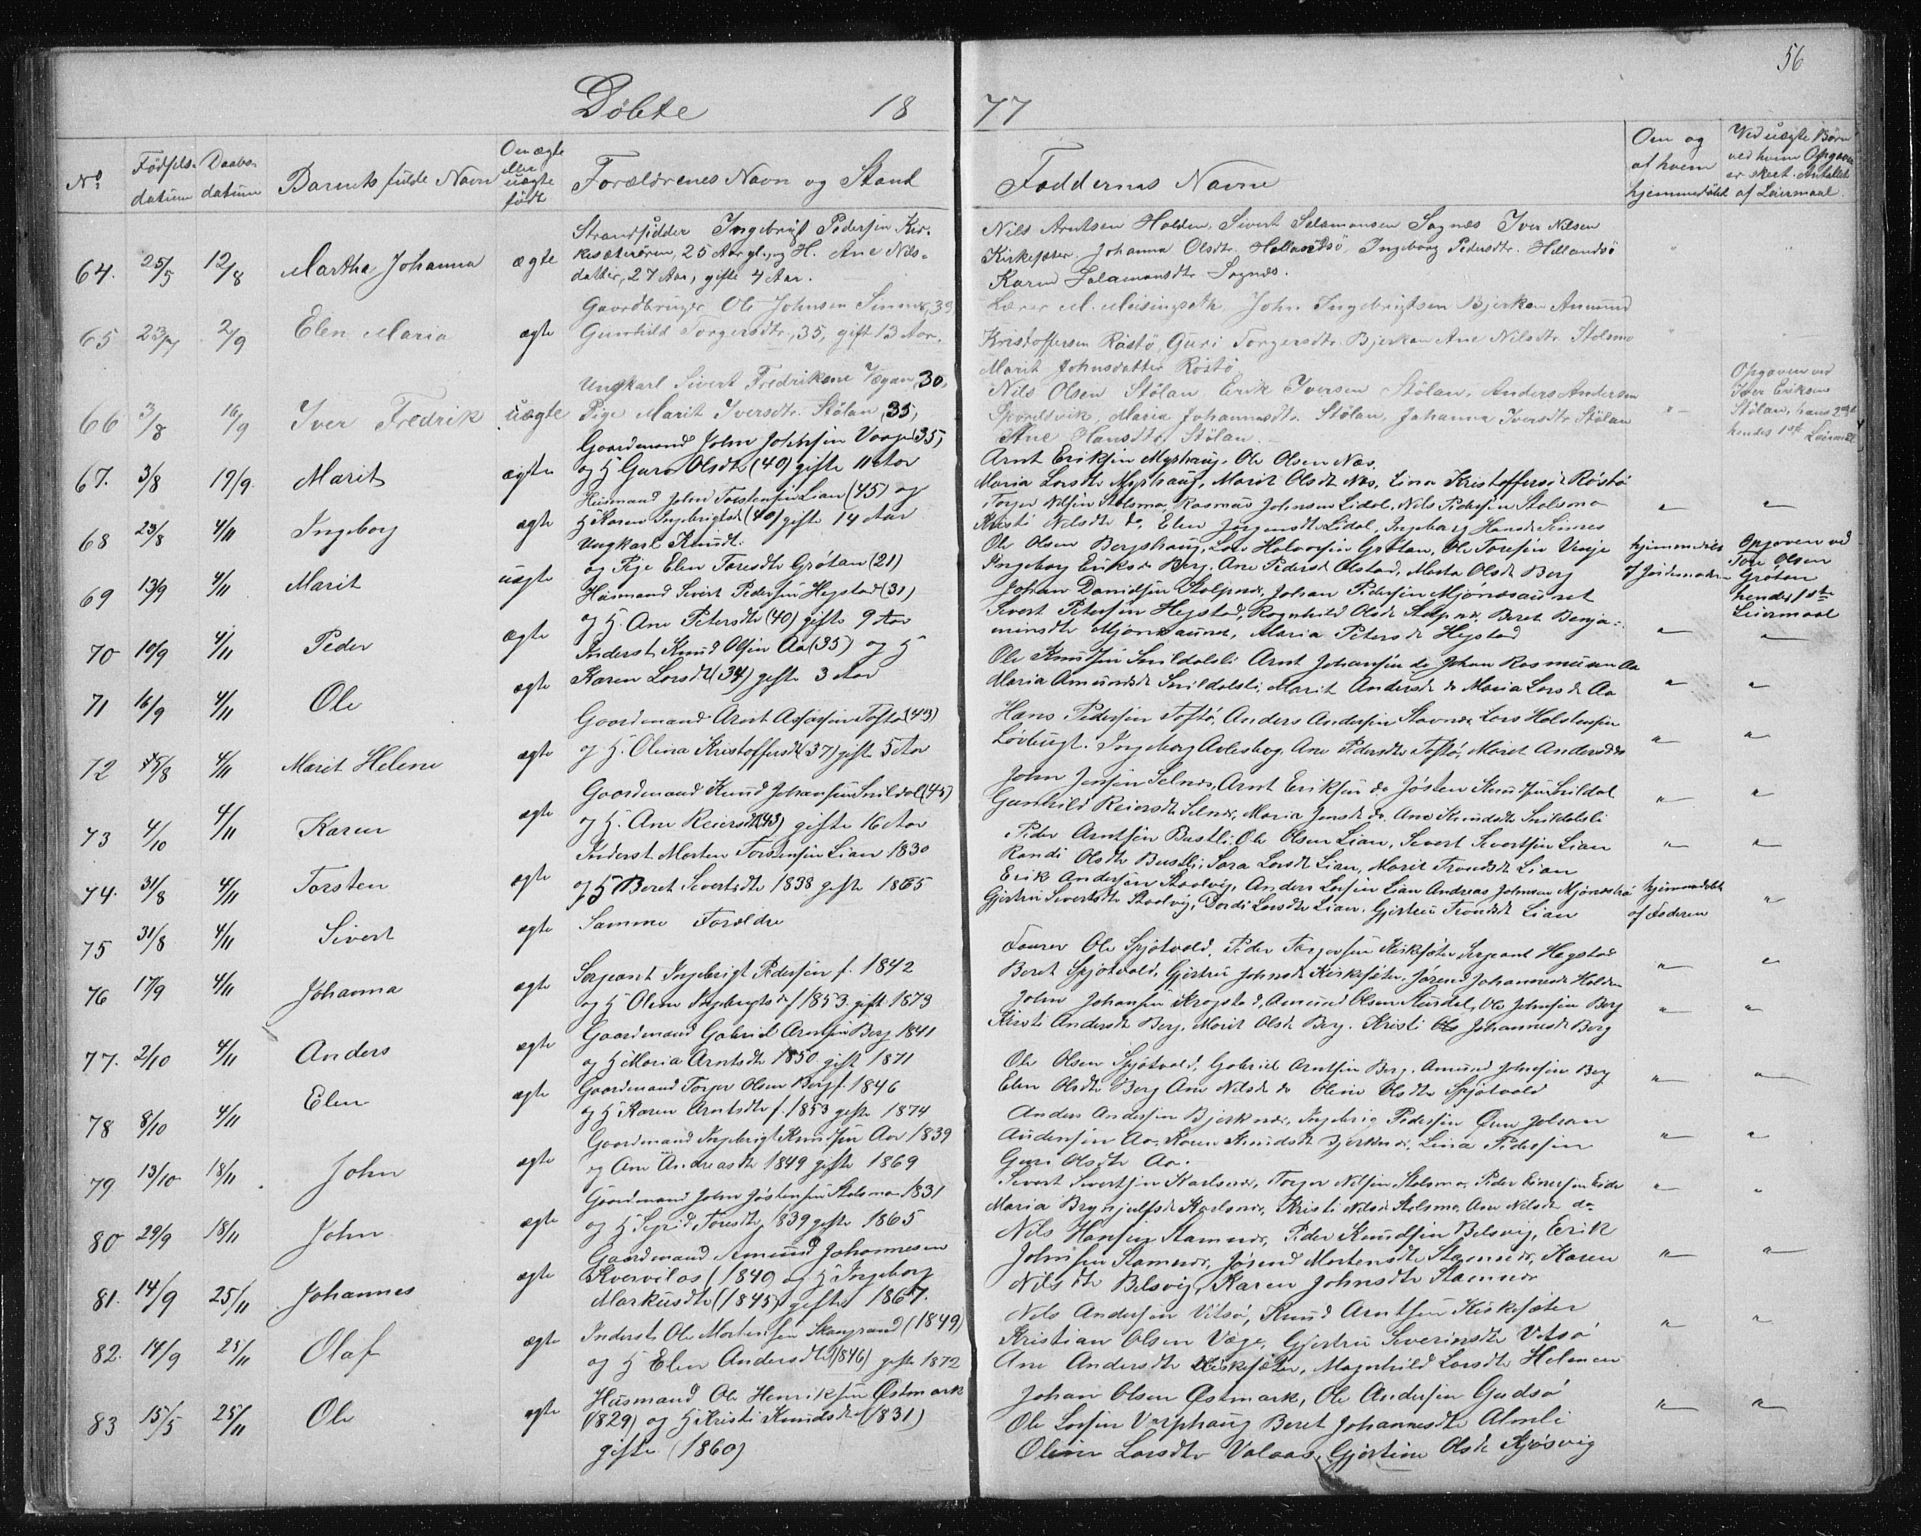 56
Døbte 18 77
No Fødsels datum Daabs datum Barnets fulde Navn Om ægte eller uægte født Forældrenes Navn og Stand Faddernes Navne Om og af hvem hjemmedøbt Ved uægte Børn ved hvem Opgaven er skeet. Antallet af Leiermaal.
64. 25/5 12/8 Martha Johanna ægte
Strandsidder Ingebrigt Pedersen Kir-
kesæterøren, 25 Aar gl., og H. Ane Nils-
datter, 27 Aar, gifte 4 Aar.
Nils Arntsen Holden, Sivert Salamonsen Sognæs Iver Nilsen
Kirkesæter, Johanna Olsdt. Hollandsø, Ingeborg Pedersdtr. Hollandsø
Karen Salamonsdtr Sognæs.
65 23/7 2/9 Elen Maria ægte
Gaardbruger Ole Johnsen Sinnes, 39
Gunhild Torgersdtr., 35, gift 13 Aar.
Lærer M. Meisingseth, John Ingebrigtsen Bjerkan Amund
Kristoffersen Røstø, Guri Torgersdtr. Bjerkan Ane Nilsdtr Stolsmo
Marit Johnsdatter Røstø
66 3/8 16/9 Iver Fredrik uægte
Ungkarl Sivert Fredriksen Vægan, 30,
Pige Marit Iversdtr. Stølan, 35,
Nils Olsen Stølan, Erik Iversen Stølan, Anders Andersen
Maria Johannesdtr. Stølan, Johanna Iversdtr Stølan
Ane Hansdtr. Stølan.
Opgaven ved
Iver Eriksen
Stølan, hans 2det
hendes 1ste Leiermaal
67. 3/8 19/9 Marit ægte
Gaardmand John Johnsen (35)
og H Guro Olsdt (40) gifte 11 Aar
Arnt Eriksen Myshaug, Ole Olsen Næs.
Maria Larsdt Myshaug, Marit Olsdt Næs, Lina Kristoffersdt Røstø
68 23/8 4/11 Ingeborg ægte
Husmand John Torstensen Lian (45) og
H Karen Ingebrigtsd (40) gifte 14 Aar
Torger Nilsen Stolsmo, Rasmus Johnsen Lidal, Nils Pedersen Stolsmo
Kristi Nilsdt do, Elen Jørgensdt Lidal, Ingeborg Hansdt Sinnes
69 13/9 4/11 Marit uægte
Ungkarl Knudt
og Pige Elen Toresdtr Grøtan (21)
Ole Olsen Bergshaug, Lars Halvorsen Grøtan, Ole Toresen Venje
Ingeborg Eriksd Berg, Ane Pedersd Olstad, Marta Olsdt Berg
hjemmedøbt
af Jordemoderen
Opgaven ved
Tore Olsen
Grøtan
hendes 1ste
Leiermaal
70 10/9 4/11 Peder ægte
Husmand Sivert Pedersen Hegstad (31)
og H. Ane Petersdt (40) gifte 9 Aar
Johan Danielsen Stolpnes, Johan Pedersen Mjønesaunet
Sivert Petersen Hegstad, Ragnhild Olsdt Stolpnes, Beret Benja-
minsdt Mjønesaunet, Maria Petersdt Hegstad
71 16/9 4/11 Ole ægte
Inderst Knud Olsen Aa (35) og H
Karen Larsdt (34) gifte 3 Aar
Ole Knudsen Snildalsli Arnt Johansen do Johan Rasmusen Aa
Maria Amundsdt Snildalsli, Marit Andersdt do Maria Larsdt Aa
72 5/8 4/11 Marit Helene ægte
Gaardmand Arnt Assersen Toftø (43)
og H. Olina Kristoffersdt (37) gifte 5 Aar
Hans Pedersen Toftø, Anders Andersen Stavnes Lars Holstensen
Løvbugt. Ingeborg Ane Pedersdtr Toftø, Marit Andersd do
73 4/10 4/11 Karen ægte
Gaardmand Knud Johansen Snildal (45)
og H. Ane Reiersdt (43) gifte 16 Aar
John Jensen Selnes, Arnt Eriksen do Jøsten Knudsen Snildal
Gunhild Reiersdt Selnes, Maria Jensdt do, Ane Knudsdt Snildalsli
74. 31/8 4/11 Torsten ægte
Inderst Morten Torstensen Lian 1830
og H Beret Sivertsdt 1838 gifte 1865
Peder Arntsen Bustli, Ole Olsen Lian, Sivert Sivertsen Lian
Randi Olsdtr Bustli, Sara Larsdt Lian, Marit Trondsdt Lian
75 31/8 4/11 Sivert ægte
Samme Forældre
Erik Andersen Staalvig, Anders Larsen Lian Andreas Johnsen
Gjertru Sivertsdt Staalvig, Dordi Larsdtr Lian, Gjertru Trondsdt Lian
hjemmedøbt
af Faderen
76 17/9 4/11 Johanna ægte
Sergeant Ingebrigt Pedersen f. 1842
og H Olina Ingebrigtsd f 1853 gift 1873
Fourer Ole Spjøtvold, Peder Torgersen Kirkesæter Sergeant Hegstad
Beret Spjøtvold, Gjertru Johnsdt Kirkesæter, Jørend Johannesdt Holden
77. 2/10 4/11 Anders ægte
Gaardmand Gabriel Arntsen Berg 1841
og H Maria Arntsdtr 1850 gift 1871
John Johansen Krogstad, Amund Olsen Ole Johnsen Berg
Kristi Andersdt Berg, Marit Olsdt Berg. Kristi Johannesdt Berg
78 8/10 4/11 Elen ægte
Gaardmand Torger Olsen Berg f. 1846
og H Karen Arntsdtr f. 1853 gifte 1874
Ole Olsen Spjøtvold, Gabriel Arntsen Berg, Amund Johnsen Berg
Elen Olsdtr Berg Ane Nilsdt do Oline Olsdtr Spjøtvold
79 13/10 18/11 John ægte
Gaardmand Ingebrigt Knudsen Aa 1839
og Ane Andreasdt 1849 gifte 1869
Anders Andersen Bjerknes, Ingebrig Pedersen Johan
Andersen Aa, Karen Knudsdt Bjerknes, Lina Pedersen
Guri Olsdtr Aa.
80 29/9 18/11 John ægte
Gaardmand John Jøstensen Stolsmo 1831
og H Sigrid Toresdtr 1839 gifte 1865
Sivert Sivertsen Karlsnes, Torger Nilsen Stolsmo, Peder Einersen Eide
Maria Brynjulfsdt Karlsnes, Kristi Nilsd Stolsmo, Ane Nilsdt do
81. 14/9 25/11 Johannes ægte
Gaardmand Amund Johannesen
Kvervilos (1840 og H Ingeborg
Markusdtr (1845) gifte 1867.
Nils Hansen Stamnes, Peder Knudsen Belsvig, Erik
Johnsen Stamnes, Jørend Mortensdtr Stamnes, Karen
Nilsdtr Belsvig, Karen Johnsdtr Stamnes
82. 14/9 25/11 Olaf ægte
Inderst Ole Mortensen Skangrand (1849)
og H Elen Andersdtr (1846) gifte 1872
Nils Andersen Vitsø, Knud Arntsen Kirkesæter
Kristian Olsen Væge, Gjertru Severinsdtr Vitsø
Ane Andersdtr Kirkesæter, Magnhild Larsdtr Holmen
83 15/5 25/11 Ole ægte
Husmand Ole Henriksen Østmark
(1829) og H Kristi Knudsdtr (1831)
gifte (1860)
Johan Olsen Østmark, Ole Andersen Gudsø
Ole Larsen Beret Johannesdtr Almli
Oline Larsdtr Valaas, Gjertine Olsdt Kjøsvig